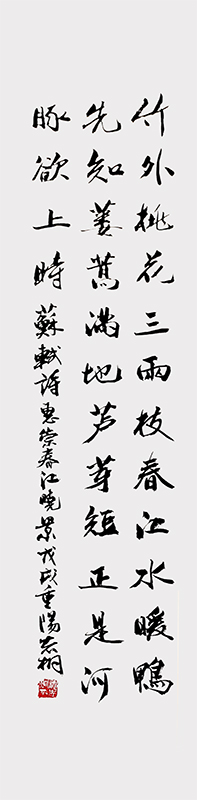 竹外桃花三兩枝春江水暖鴨
先知蔞蒿滿地芦芽短正是河
豚欲上時蘇軾詩惠崇春江曉景戊戌重陽